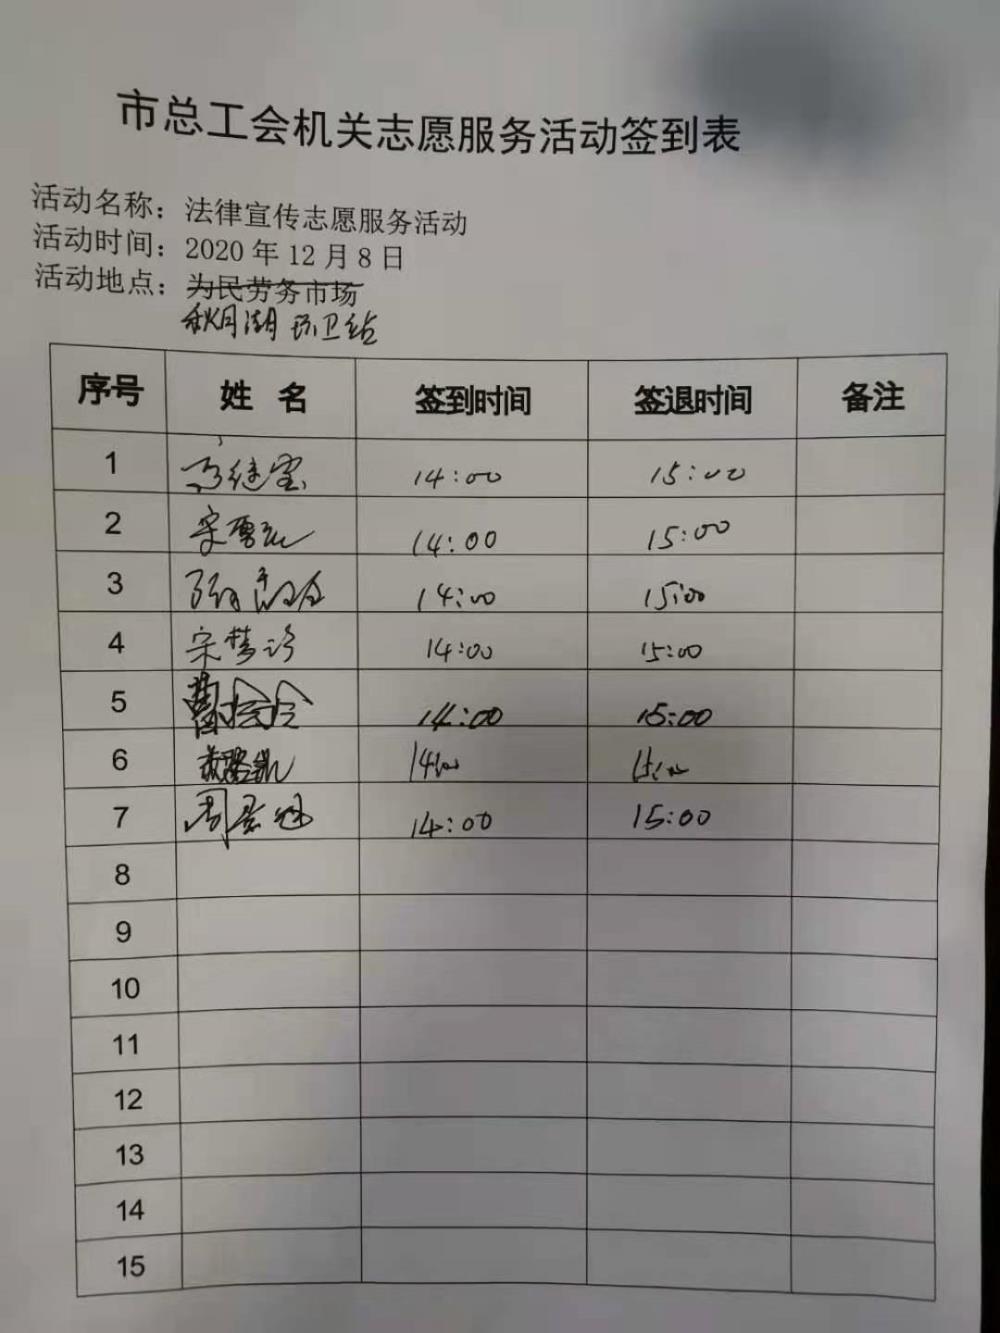 市总工会机关志愿服务活动签到表
活动名称：法律宣传志愿服务活动
活动时间：2020年12月8日
活动地点：为民劳务市场
秋月湖环卫站
序号 姓 名 签到时间 签退时间 备注
1 14:00 15:00
2 14:00 15:00
3 14:00 15:00
4 宋梦 14:00 15:00
5 14:00 15:00
6 14:00 15:00
7 14:00 15:00
8
9
10
11
12
13
14
15